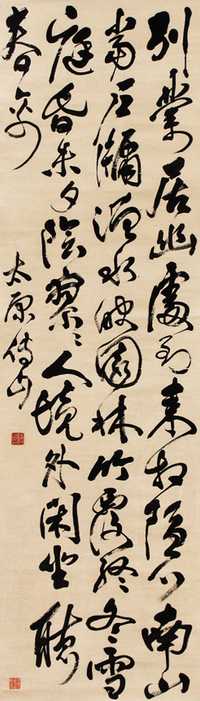 別業居幽處到来生隱心南山
當戶牖灃水映園林竹覆經冬雪
庭昏未夕陰寥〻人境外閑坐聽
春禽
太原傅山